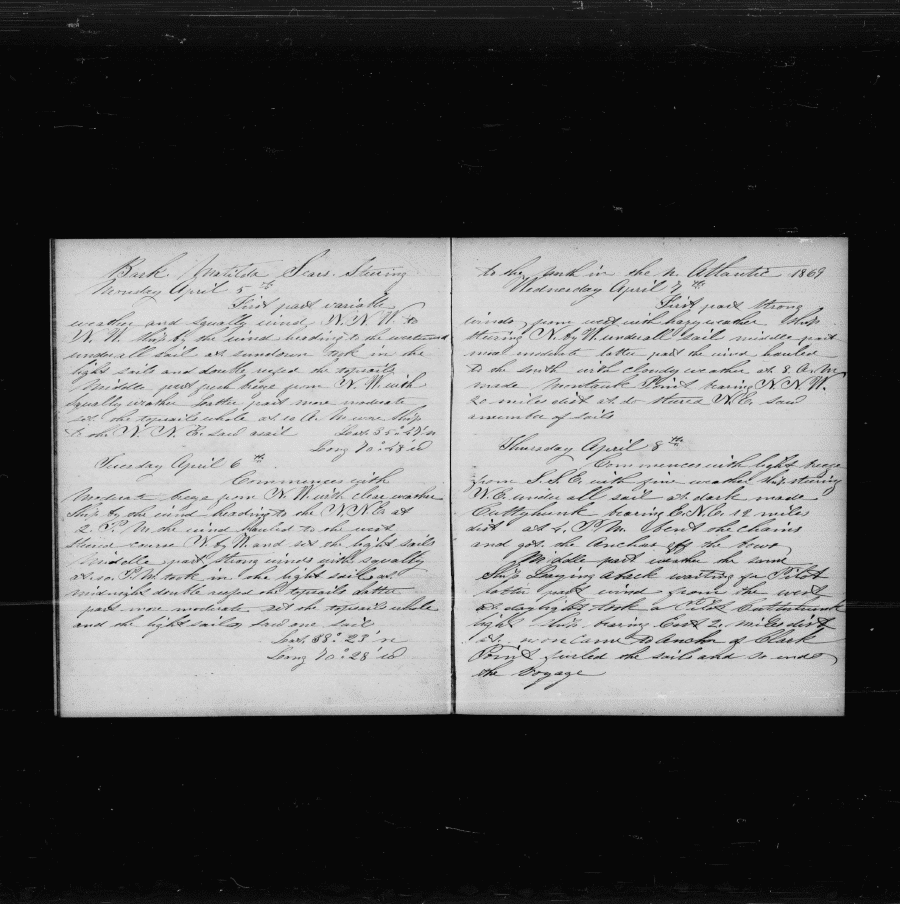 Bark Matilda Sears Steering
Monday April 5th
First part variable
weather and squally wind N.N.W. to
W.N. Ship by the wind heading to the westward
under all sail at sundown took in the
light sails and double reefed the topsails
Middle part fresh breeze from N.W. with
squally weather latter part more moderate
set the topsails whole at 10 A.M. wore ship
to the N.N.E. saw a sail Lat 35° 47' n
Long 70° 48' w
Tuesday April 6th
Commences with
Moderate breeze from N.W. with clear weather
Ship by the wind heading to the N.N.E. at
2 P.M. the wind hauled to the west
steered course N by W. and set the light sails
Middle part strong winds with squally
at 10 P.M. took in the light sails at
midnight double reefed the topsails latter
part more moderate set the topsails whole
and the light sails saw one sail
Lat 38° 23' n
Long 70° 28' w
to the north in the n. Atlantic 1869
Wednesday April 7th
First part strong
winds from west with hazy weather Ship
steering N. by W. under all sail middle part
more moderate latter part the wind hauled
to the south with cloudy weather at 8 A.M.
made Montauk Point bearing N.N.W.
20 miles dist at do steered N.E. saw
a number of sails
Thursday April 8th
Commences with light breeze
from S.S.E. with fine weather Ship steering
N.E. under all sail at dark made
Cuttyhunk bearing E.N.E. 12 miles
dist at 4 P.M. bent the chains
and got the Anchors off the bows
Middle part weather the same
Ship Laying aback waiting for Pilot
latter part wind from the west
at daylight took a Pilot Cuttyhunk
light Ship bearing East 2 miles dist
at noon came to Anchor of Clark
Point furled the sails and so ends
the Voyage